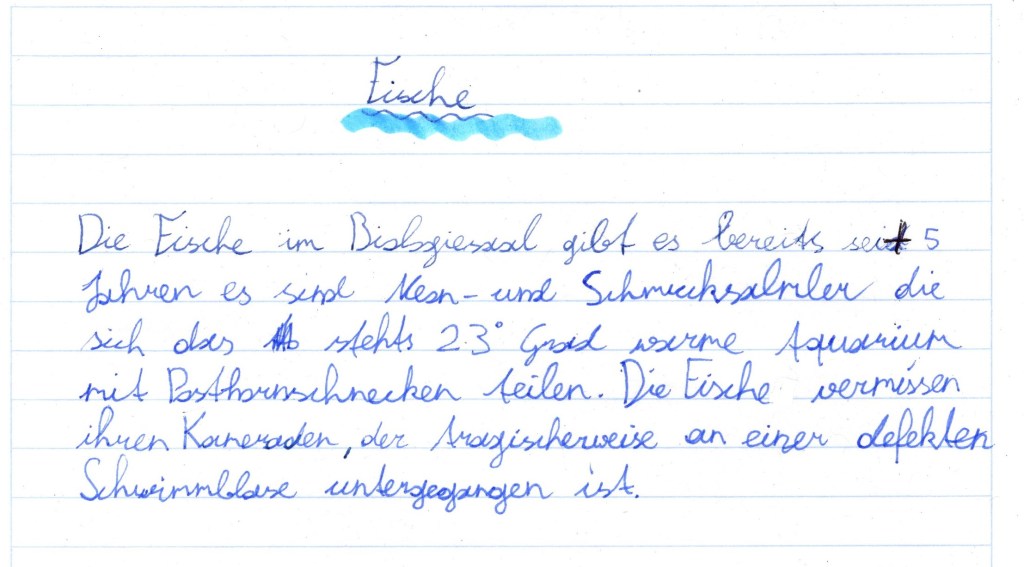 Fische
Die Fische im Biologiesaal gibt es bereits seit 5
Jahren es sind Neon- und Schmucksalmler die
sich das stehts 23° Grad warme Aquarium
mit Posthornschnecken teilen. Die Fische vermissen
ihren Kameraden, der tragischerweise an einer defekten
Schwimmblase untergegangen ist.